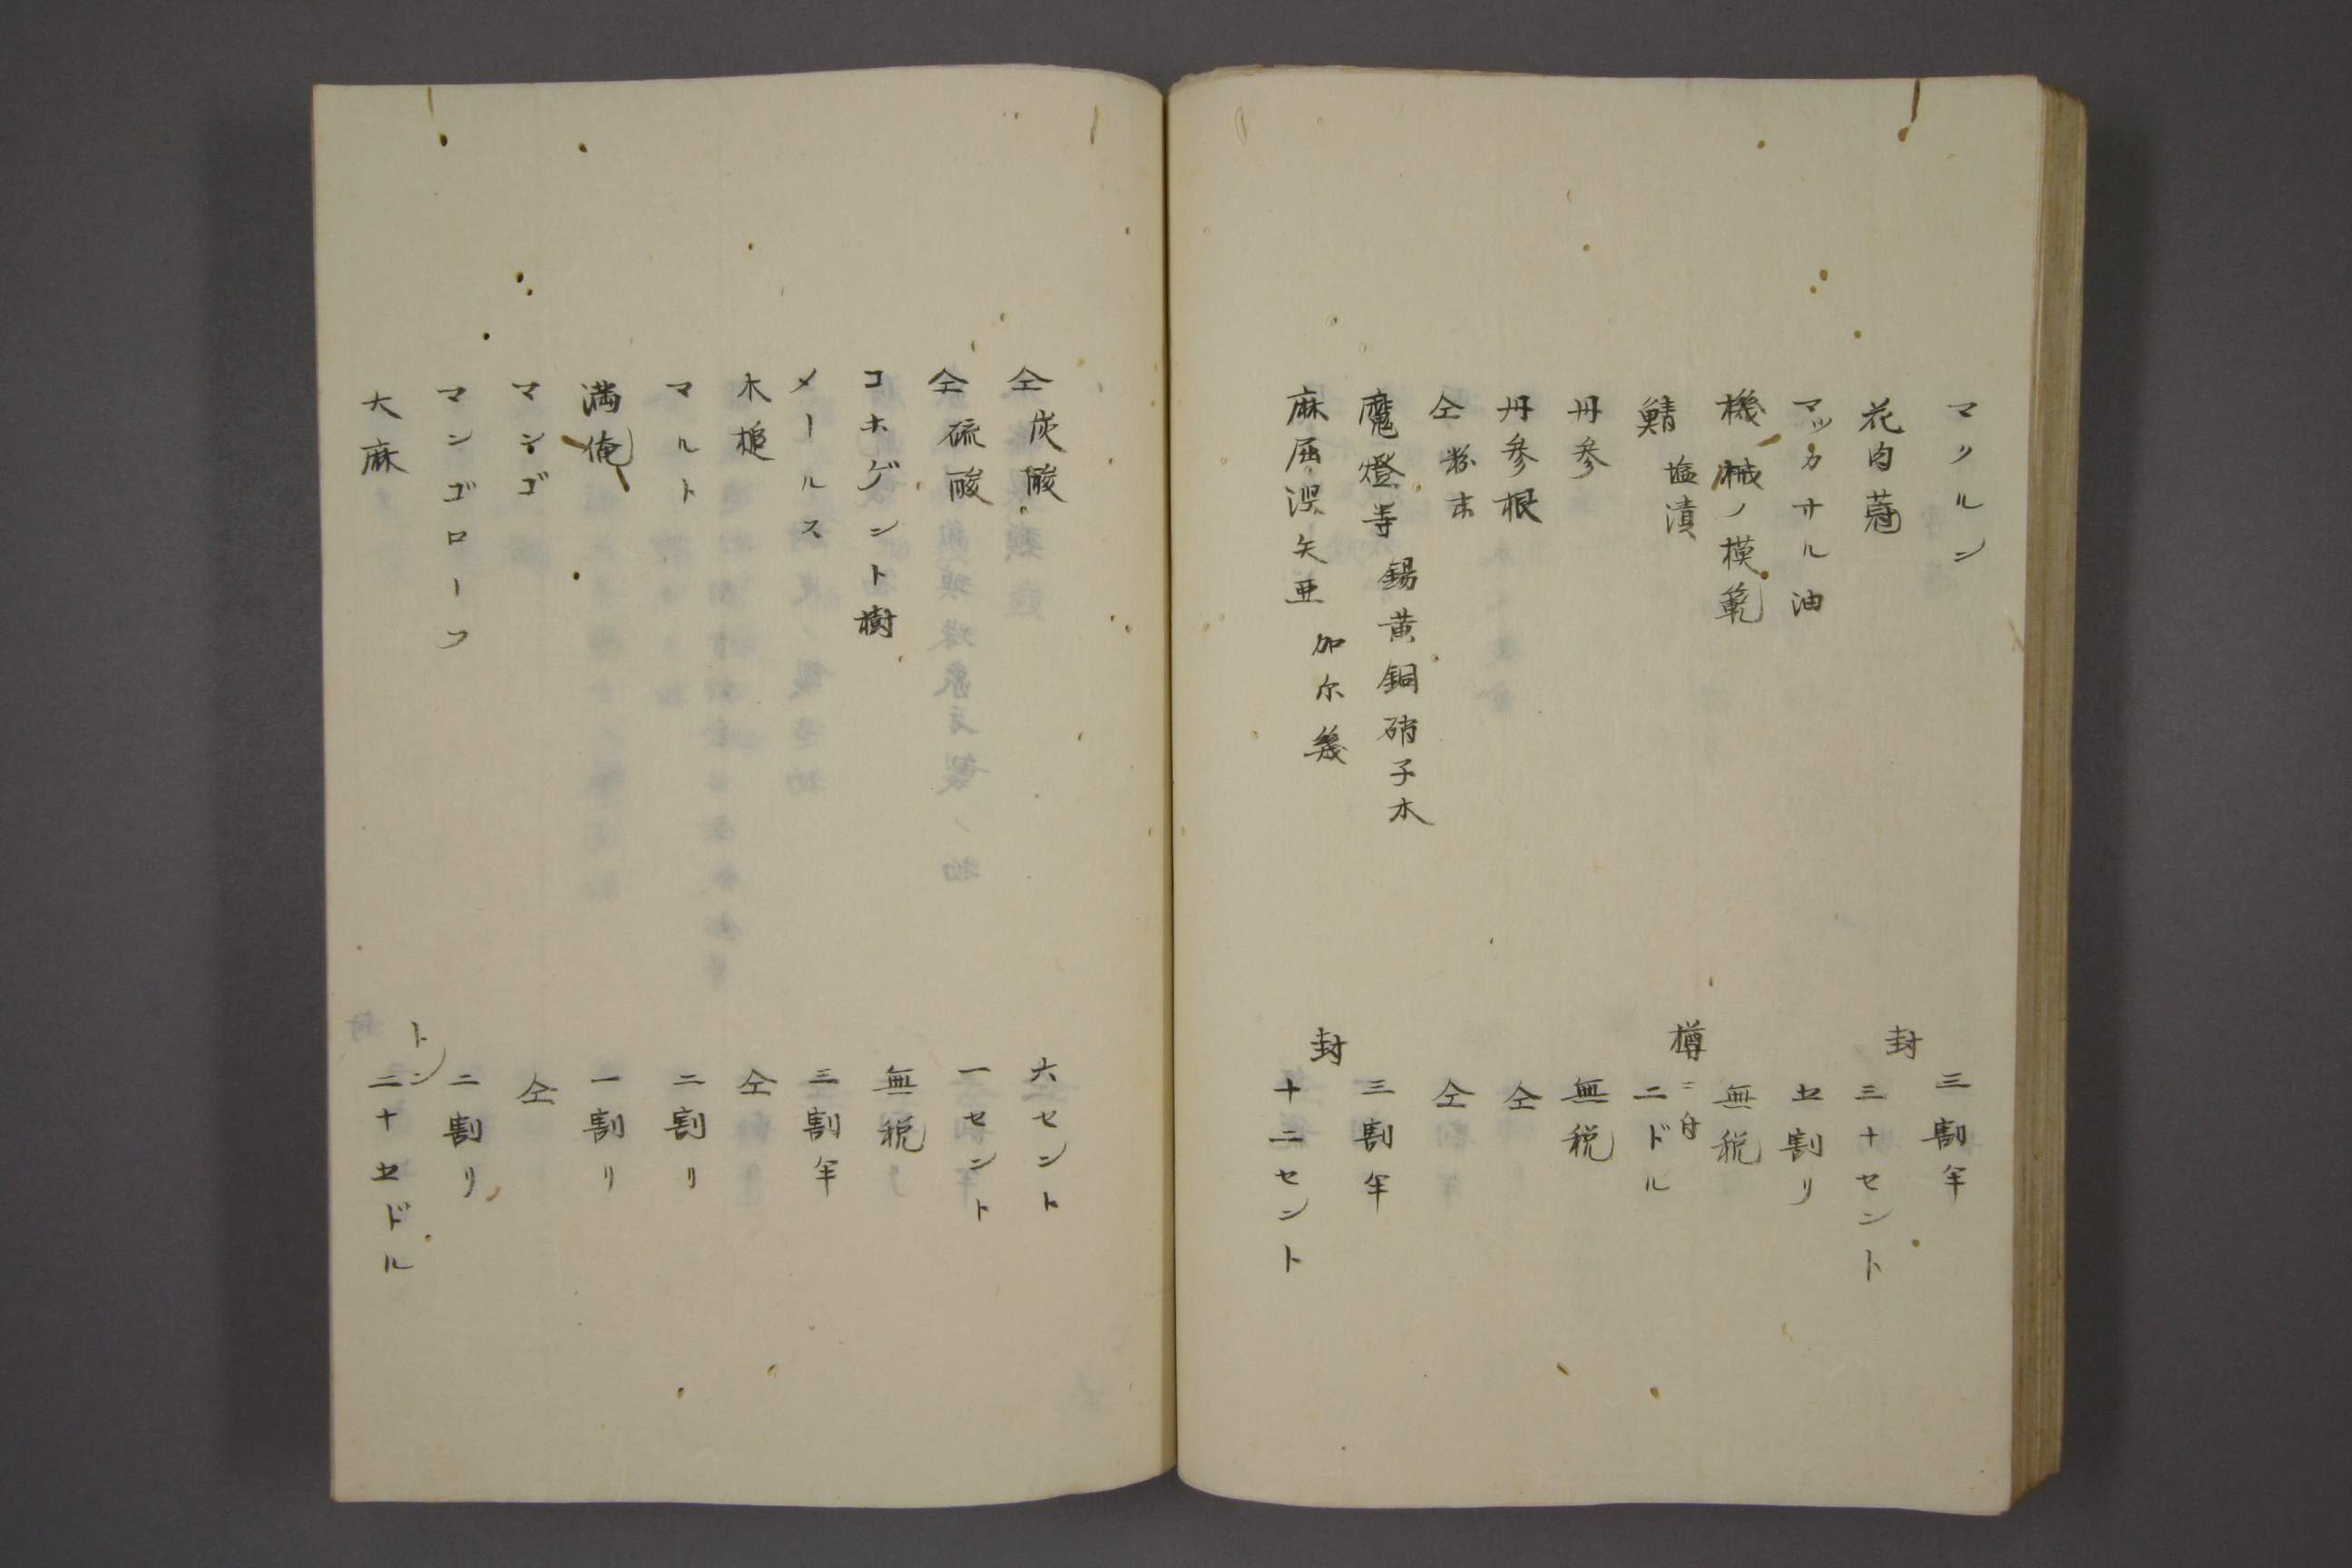 マツルン 三割半
花肉蒄 封 三十セント
マッカサル油 五割リ
機械ノ模範 無税
鯖 塩漬 樽ニ付 二ドル
丹参 無税
丹参根 仝
仝粉末 仝
魔燈等 錫黄銅硝子木 三割半
麻屈涅矢亜 加尓幾 封 十二セント
仝炭酸 六セント
仝硫酸 一セント
コホゲント樹 無税
メールス 三割半
木槌 仝
マルト 二割リ
満俺 一割リ
マンゴ 仝
マンゴローフ 二割リ
大麻 トン 二十五ドル